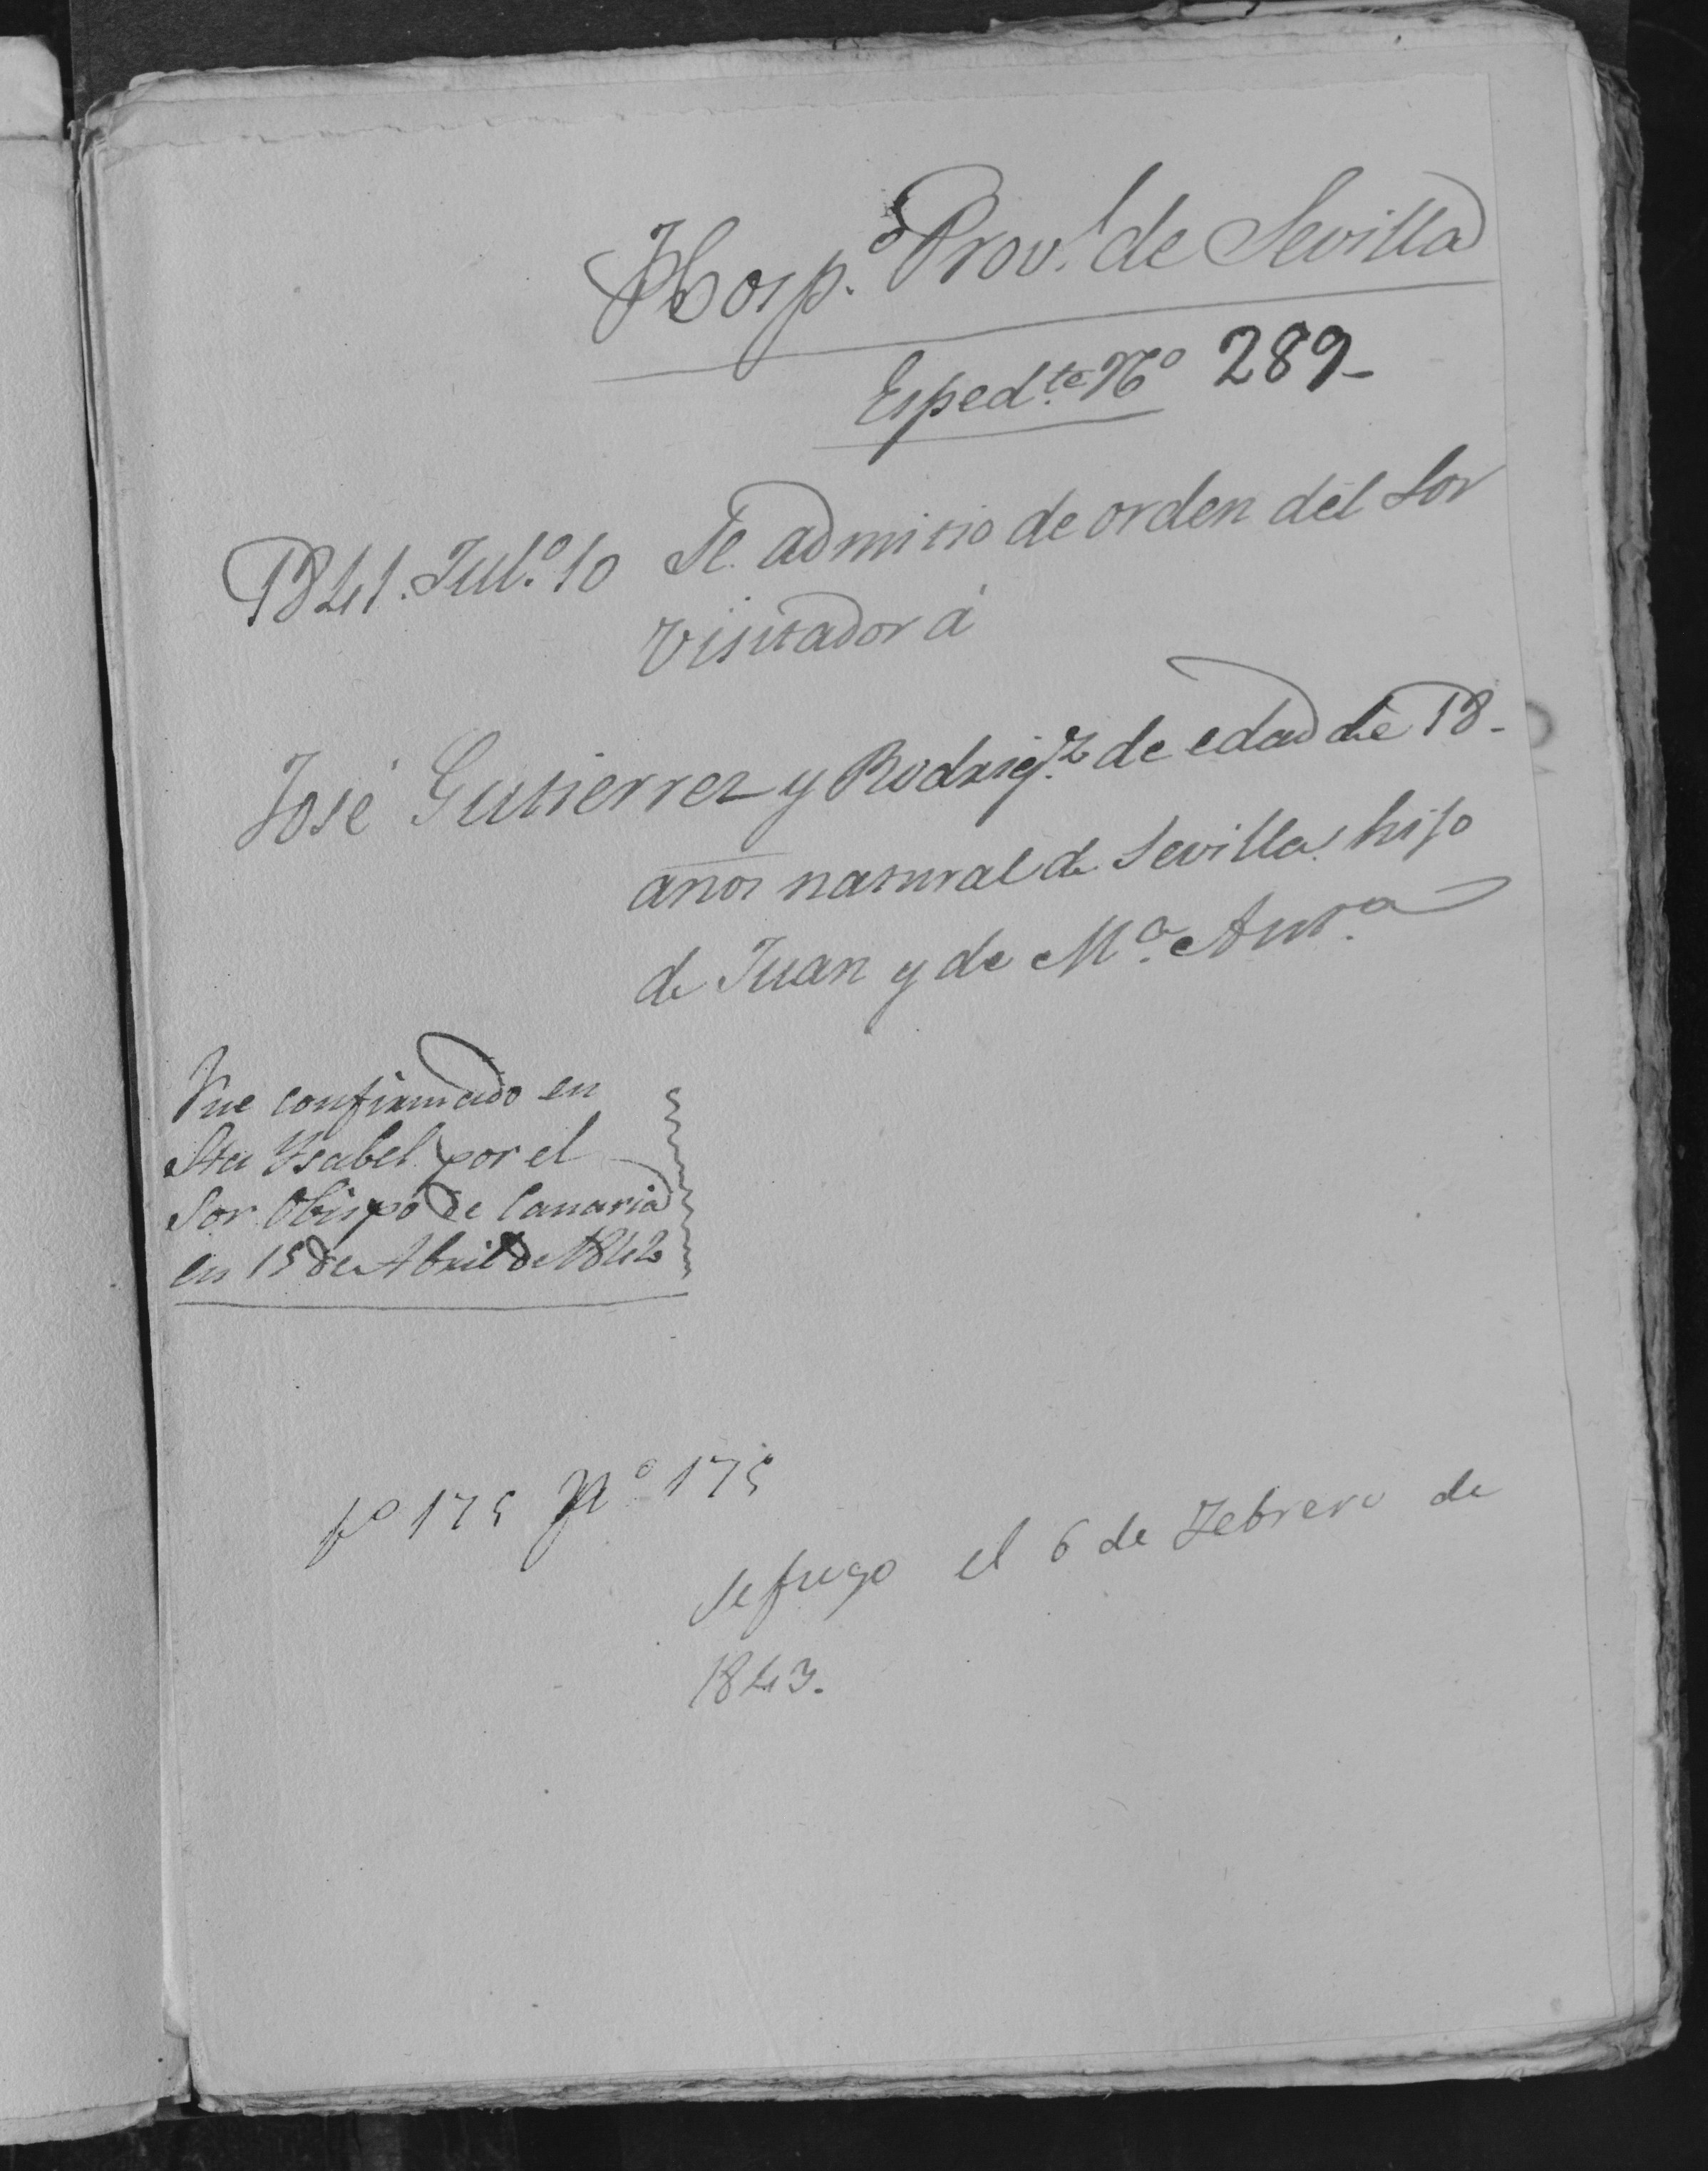 Hosp.º Prov.l de Sevilla
Esped.te Nº 289-
1841. Jul.º 10 Se admitio de orden del Sor
Visitador á
José Gutierrez y Rodrig.z de edad de 18-
años natural de Sevilla hijo
de Juan y de M.ª Ant.ª
Fue confirmado en
Sta Ysabel por el
Sor. Obispo de Canaria
en 15 de Abril de 1842
fº 175 Nº 175
Se fugo el 6 de Febrero de
1843.